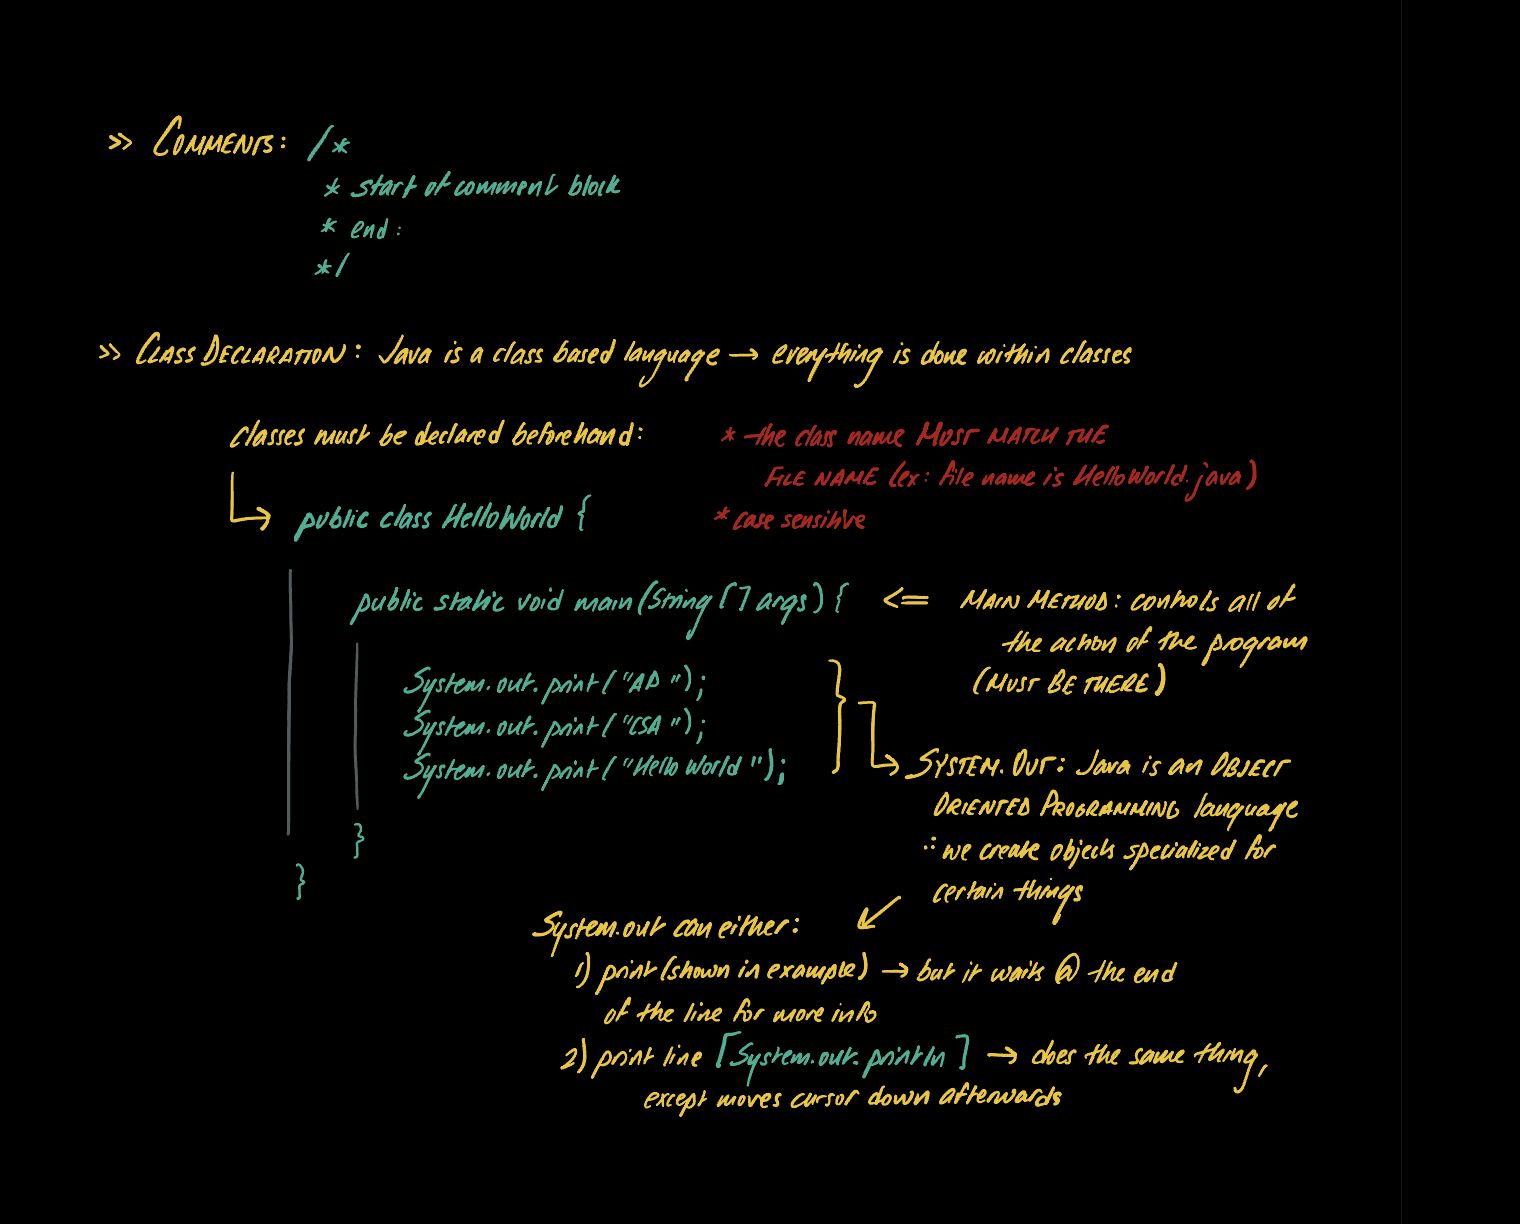 >> COMMENTS: /*
* start of comment block
* end:
*/
>> CLASS DECLARATION: Java is a class based language → everything is done within classes
Classes must be declared beforehand:
* the class name MUST MATCH THE
FILE NAME (ex: file name is HelloWorld.java)
public class HelloWorld {
* case sensitive
public static void main(String [] args) { <= MAIN METHOD: controls all of
the action of the program
(MUST BE THERE)
System.out.print("AP ");
System.out.print("CSA ");
System.out.print("Hello World ");
}
}
SYSTEM.OUT: Java is an OBJECT
ORIENTED PROGRAMMING language
∴ we create objects specialized for
certain things
System.out can either:
1) print (shown in example) → but it waits @ the end
of the line for more info
2) print line [System.out.println] → does the same thing,
except moves cursor down afterwards